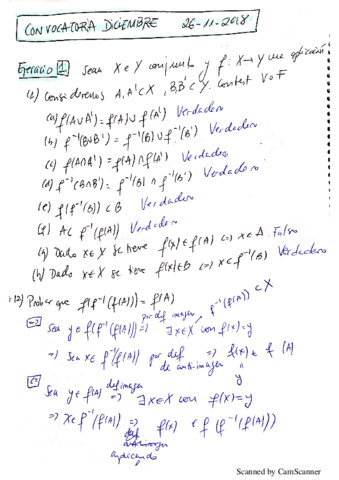 CONVOCATORIA DICIEMBRE 26-11-2018
Ejercicio 1 Sean X e Y conjuntos y f: X→Y una aplicación
(1) Consideremos A, A' ⊂ X, B, B' ⊂ Y. Contest V o F
(a) f(A∪A') = f(A) ∪ f(A') Verdadero
(b) f⁻¹(B∪B') = f⁻¹(B) ∪ f⁻¹(B') Verdadero
(c) f(A∩A') = f(A) ∩ f(A') Verdadero
(d) f⁻¹(B∩B') = f⁻¹(B) ∩ f⁻¹(B') Verdadero
(e) f(f⁻¹(B)) ⊂ B Verdadero
(f) A ⊂ f⁻¹(f(A)) Verdadero
(g) Dado x∈X se tiene f(x)∈f(A) ⇔ x∈A. Falso
(h) Dado x∈X se tiene f(x)∈B ⇔ x∈f⁻¹(B) Verdadero
(2) Probar que f(f⁻¹(f(A))) = f(A)
⇒ Sea y∈f(f⁻¹(f(A))) ⇒ por def imagen ∃x∈X con f(x)=y f⁻¹(f(A)) ⊂ X
⇒ Sea x∈f⁻¹(f(A)) por def de anti-imagen ⇒ f(x) ∈ f(A)
y
⇐
Sea y∈f(A) def imagen ⇒ ∃x∈X con f(x)=y
⇒ x∈f⁻¹(f(A)) ⇒ f(x) ∈ f(f⁻¹(f(A)))
def
aplicando
Scanned by CamScanner